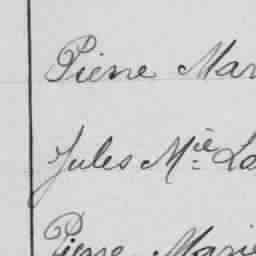 Pierre Mar
Jules Mie La
Pierre Marie